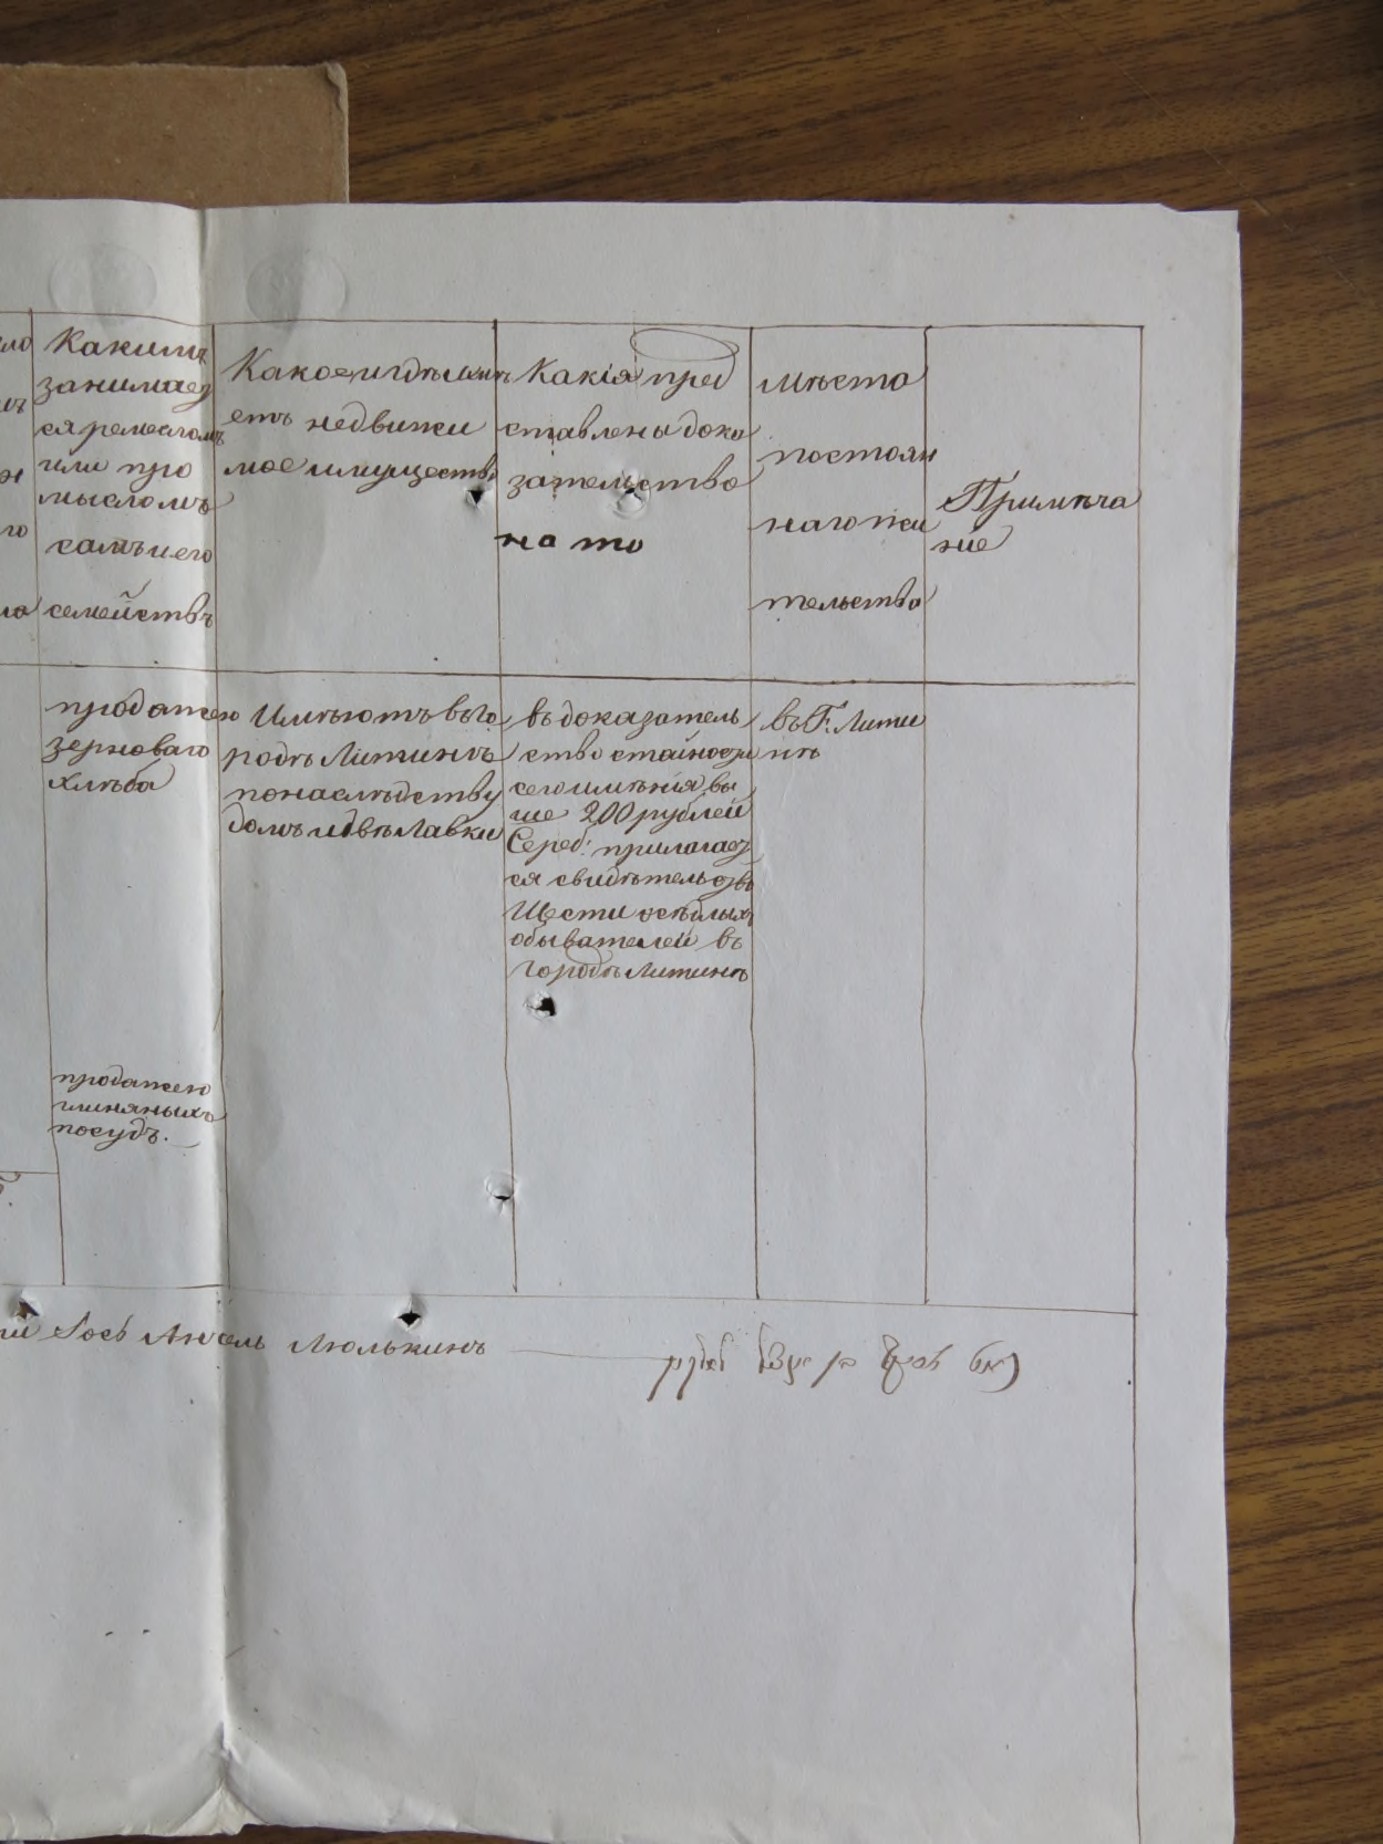 Какимъ
занимает
ся ремесломъ
или про
мысломъ
самъ и его
семействъ
Какое и где имѣ
етъ недвижи
мое имущество
Какія пред
ставлены дока
зательство
на то
Мѣсто
постоян
наго жи
тельства
Примѣча
ніе
продажею
зерноваго
хлѣба
продажею
глиняныхъ
посудъ.
Имѣютъ въ го
родѣ Литинѣ
по наслѣдству
домъ и двѣ лавки
въ доказатель
ство стайности
сего имѣнія вы
ше 200 рублей
Сереб: прилагает
ся свидѣтельство
Шести осѣдлыхъ
обывателей въ
городѣ Литинѣ
въ Г. Лити
нѣ
Іось Анчель Люлькинъ